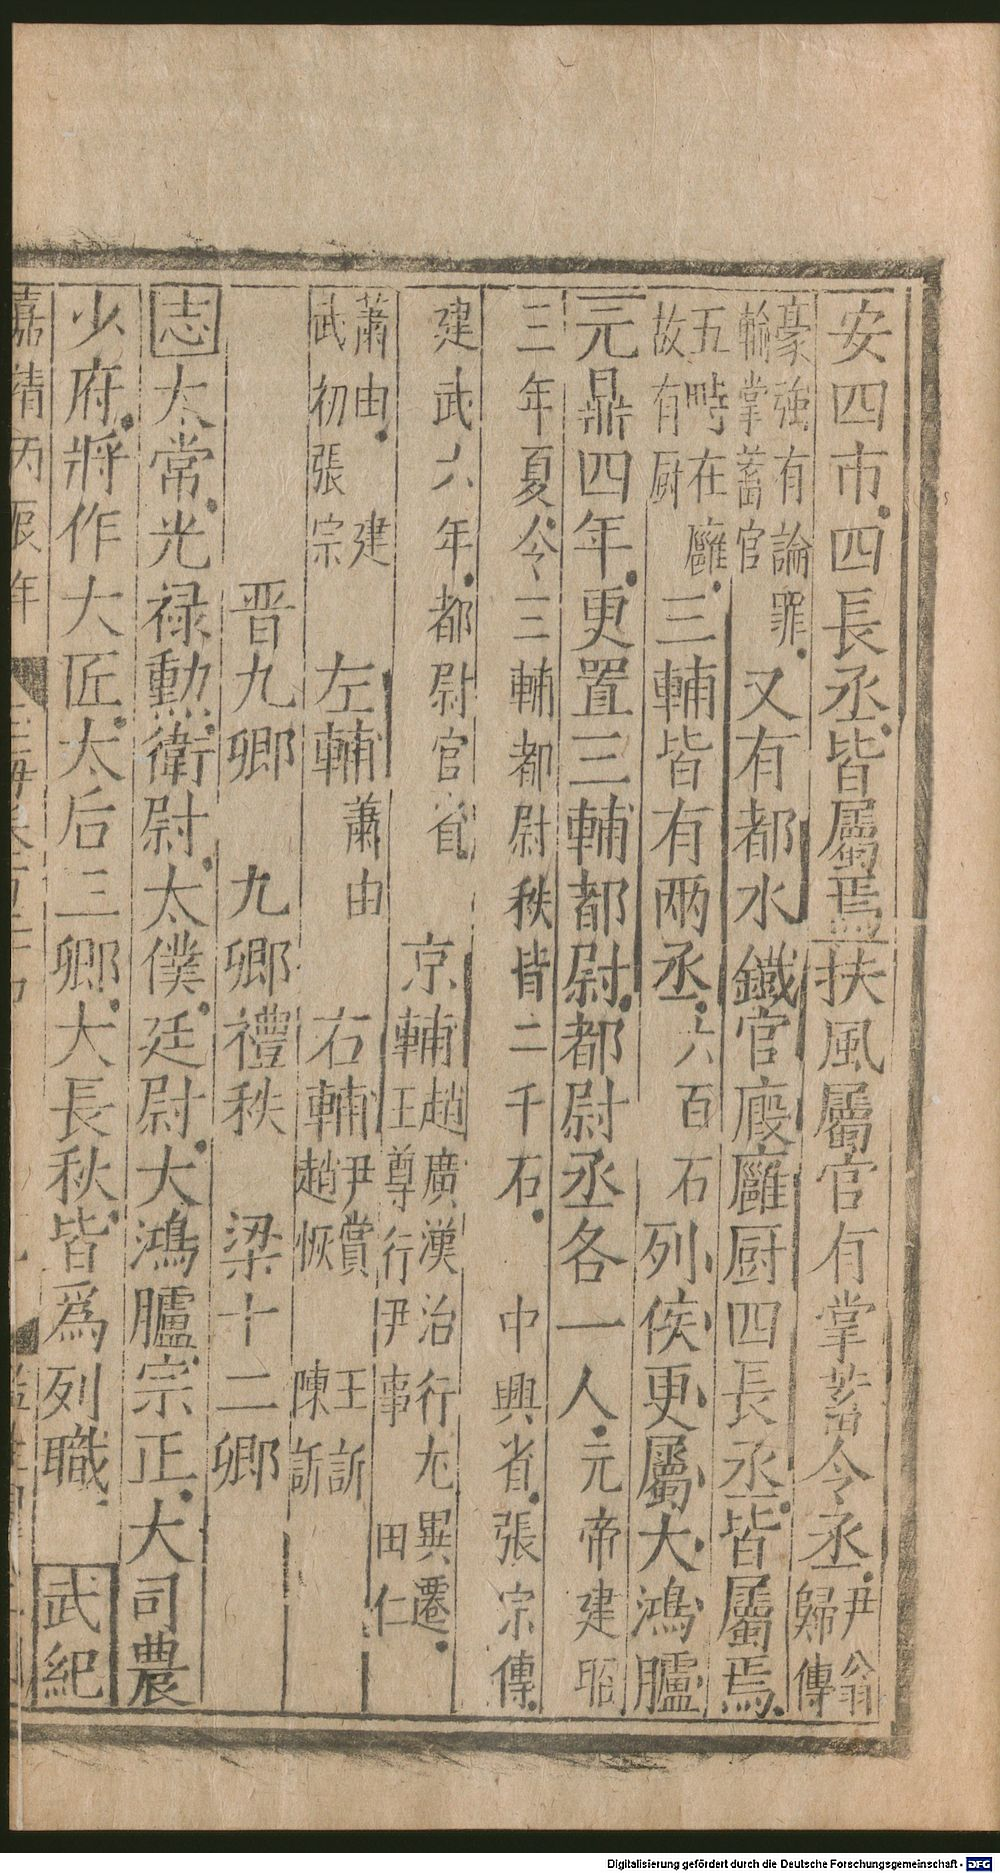 安四市四長丞皆屬焉扶風屬官有掌畜令丞尹翁歸傳
豪強有論罪輸掌畜官又有都水鐵官廄廱厨四長丞皆屬焉
五畤在廱故有厨三輔皆有兩丞六百石列侯更屬大鴻臚
元鼎四年更置三輔都尉都尉丞各一人元帝建昭
三年夏令三輔都尉秩皆二千石 中興省張宗傳
建武六年都尉官省 京輔趙廣漢治行尤異遷王尊行伊事 田仁
蕭由 建武初張宗 左輔蕭由 右輔尹賞趙恢 王訢陳訢
晋九卿 九卿禮秩 梁十二卿
志太常光禄勳衛尉太僕廷尉大鴻臚宗正大司農
少府將作大匠太后三卿大長秋皆爲列職 武紀
嘉靖丙辰年
Digitalisierung gefördert durch die Deutsche Forschungsgemeinschaft - DFG